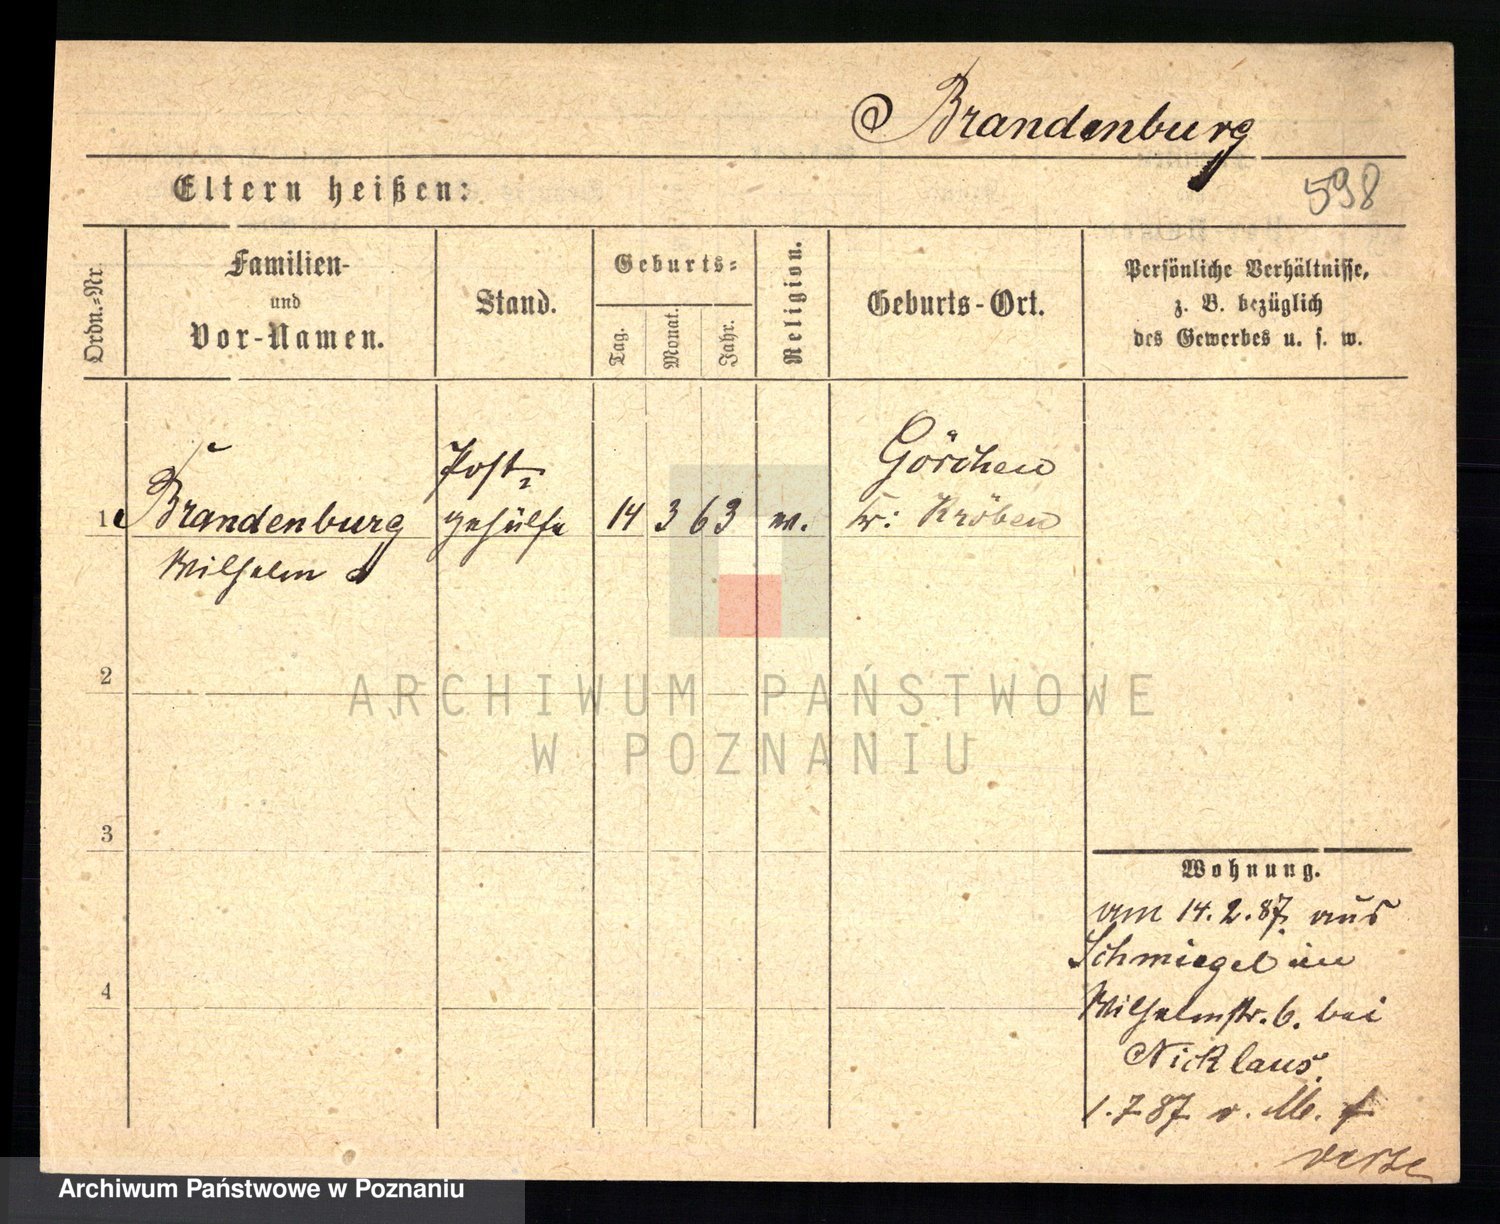 Brandenburg
598
Eltern heißen:
Ordn.-Nr.
Familien-
und
Vor-Namen.
Stand.
Geburts-
Tag.
Monat.
Jahr.
Religion.
Geburts-Ort.
Persönliche Verhältnisse,
z. B. bezüglich
des Gewerbes u. s. w.
1 Brandenburg
Wilhelm
Post-
gehülfe
14 3 63
Görchen
Kr: Kröben
2
3
4
Wohnung.
am 14.2.87. aus
Schmiegel in
Wilhelmstr. 6. bei
Nicklaus.
1.7.87 v.
ARCHIWUM PAŃSTWOWE
W POZNANIU
Archiwum Państwowe w Poznaniu